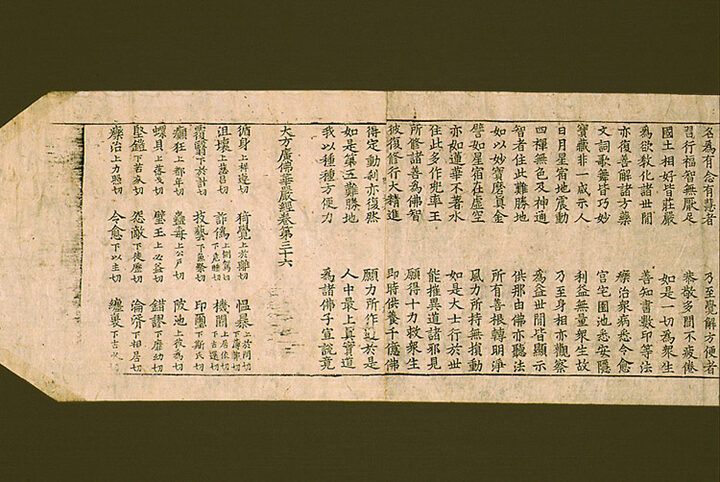 名為有念有慧者　乃至覺解方便者
習行福智無厭足　恭敬多聞不疲倦
國土相好皆莊嚴　如是一切為衆生
為欲教化諸世間　善知書數印等法
亦復善解諸方藥　療治衆病悉令愈
文詞歌舞皆巧妙　宮宅園池悉安隱
寶藏非一咸示人　利益無量衆生故
日月星宿地震動　乃至身相亦觀察
四禪無色及神通　為益世間皆顯示
智者住此難勝地　供那由佛亦聽法
如以妙寶磨真金　所有善根轉明淨
譬如星宿在虛空　風力所持無損動
亦如蓮華不著水　如是大士行於世
住此多作兜率王　能摧異道諸邪見
所修諸善為佛智　願得十力救衆生
彼復修行大精進　即時供養千億佛
得定動刹亦復然　願力所作過於是
如是第五難勝地　人中最上真實道
我以種種方便力　為諸佛子宣說竟
大方廣佛華嚴經卷第三十六
循身上祥遵切　猗覺上於離切　慍暴上於問切
沮壞上慈呂切　詐僞上側駕切下危睡切　機關上居依切下古還切
覆翳下於計切　技藝下魚祭切　印璽下斯氏切
癲狂上都年切　蠱毒上公戶切　陂池上彼為切
螺貝上落戈切　璧玉上必益切　錯謬下靡幼切
堅鎧下苦亥切　怨敵下徒歷切　淪湑下相居切
療治上力照切　令愈下以主切　纏裹下古火切